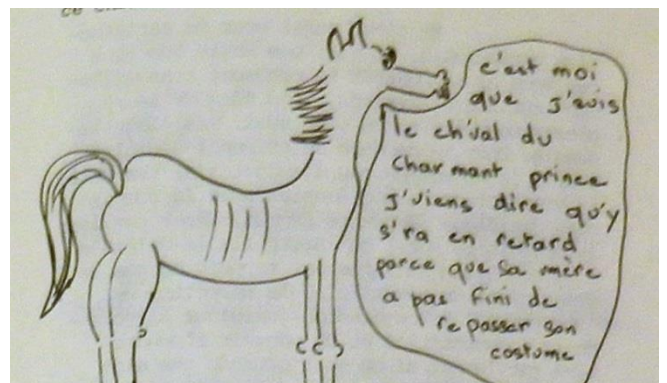 c'est moi
que j'suis
le ch'val du
charmant prince
j'viens dire qu'y
s'ra en retard
parce que sa mère
a pas fini de
repasser son
costume